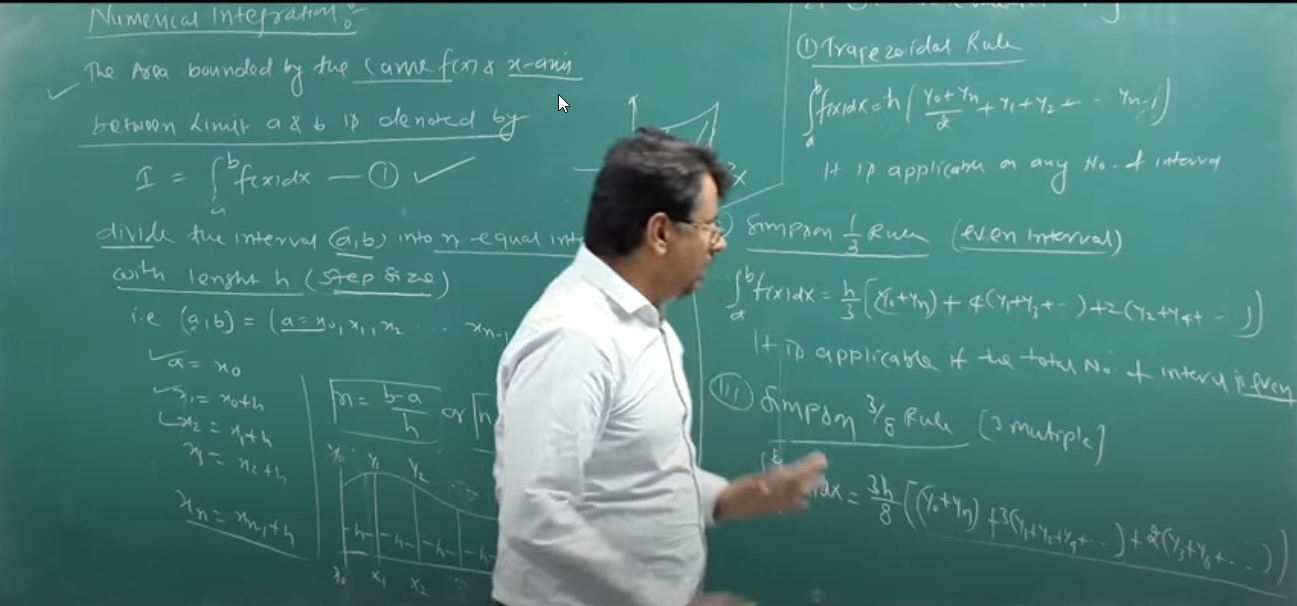 Numerical Integration :
The Area bounded by the Curve f(x) & x-axis
between Limit a & b is denoted by
I = ∫_a^b f(x)dx — ①
divide the interval (a,b) into n equal
with lenght h (step size)
i.e (a,b) = (a = x0, x1, x2 ... xn-1
a = x0
x1 = x0+h
x2 = x1+h
x3 = x2+h
xn = xn-1+h
n = b-a/h or
y0 y1 y2
h h h h
x0 x1 x2
x
① Trapezoidal Rule
∫_a^b f(x)dx = h ( y0+yn/2 + y1+y2+ -- yn-1 )
It is applicable on any No. of interval
Simpson 1/3 Rule (even interval)
∫_a^b f(x)dx = h/3 [(y0+yn) + 4(y1+y3+-- ) +2(y2+y4+ -- )]
It is applicable if the total No. of interval is even
III) Simpson 3/8 Rule (3 mutiple)
dx = 3h/8 [(y0+yn) +3(y1+y2+y4+-- ) +2(y3+y6+-- )]